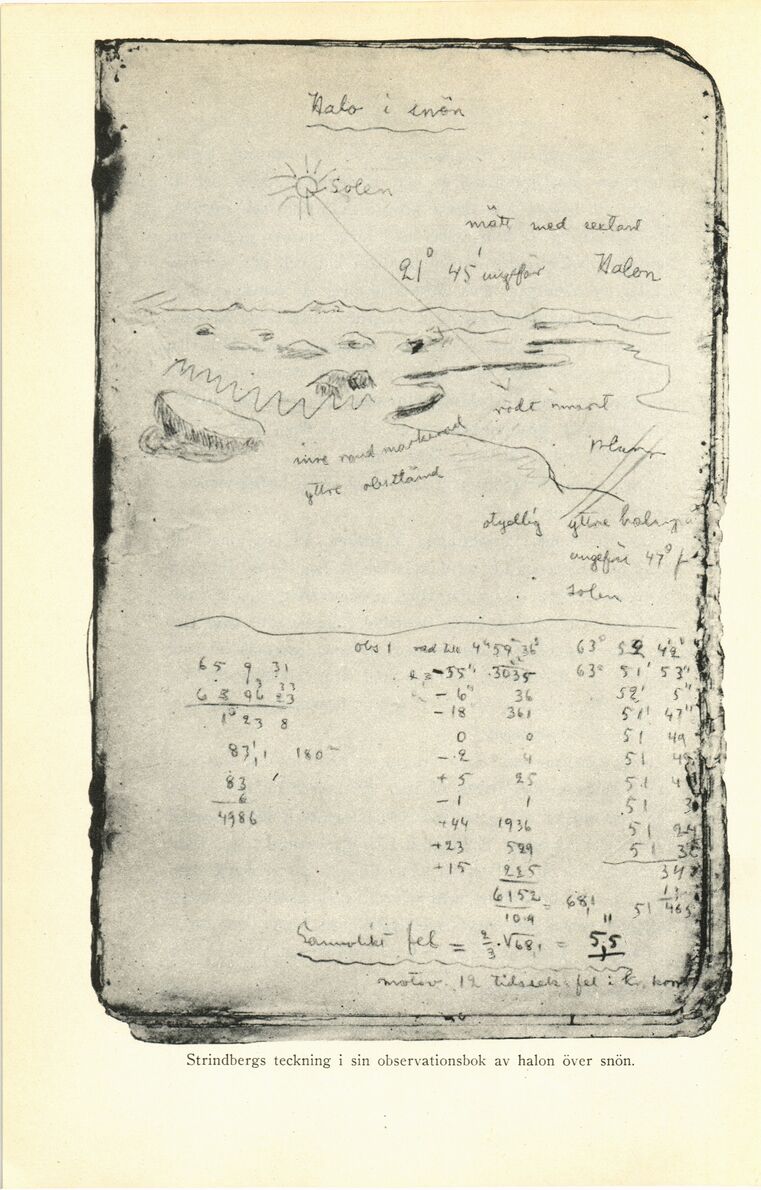 Halo i snön
Solen
mätt med sextant
21° 45' ungefär Halon
rödt innerst
inre rand markerad
yttre obestämd
otydlig yttre
ungefär 47° fr
solen
obs 1 4 59 36 63° 52 42"
65 9 31 -55" 3035 63° 51' 53"
- 6" 36 52' 5"
- 18 361 51' 47"
1° 23 8 0 0 51 49
83,1 180 - 2 4 51
83 + 5 25 51
6 - 1 1 51
4986 +44 1936 51 24
+23 529 51
+15 225
6152 = 68,1 51
10.9
Sannolikt fel = 2/3 · √68,1 = 5,5"
motsv. 12 tidssek. fel i
Strindbergs teckning i sin observationsbok av halon över snön.